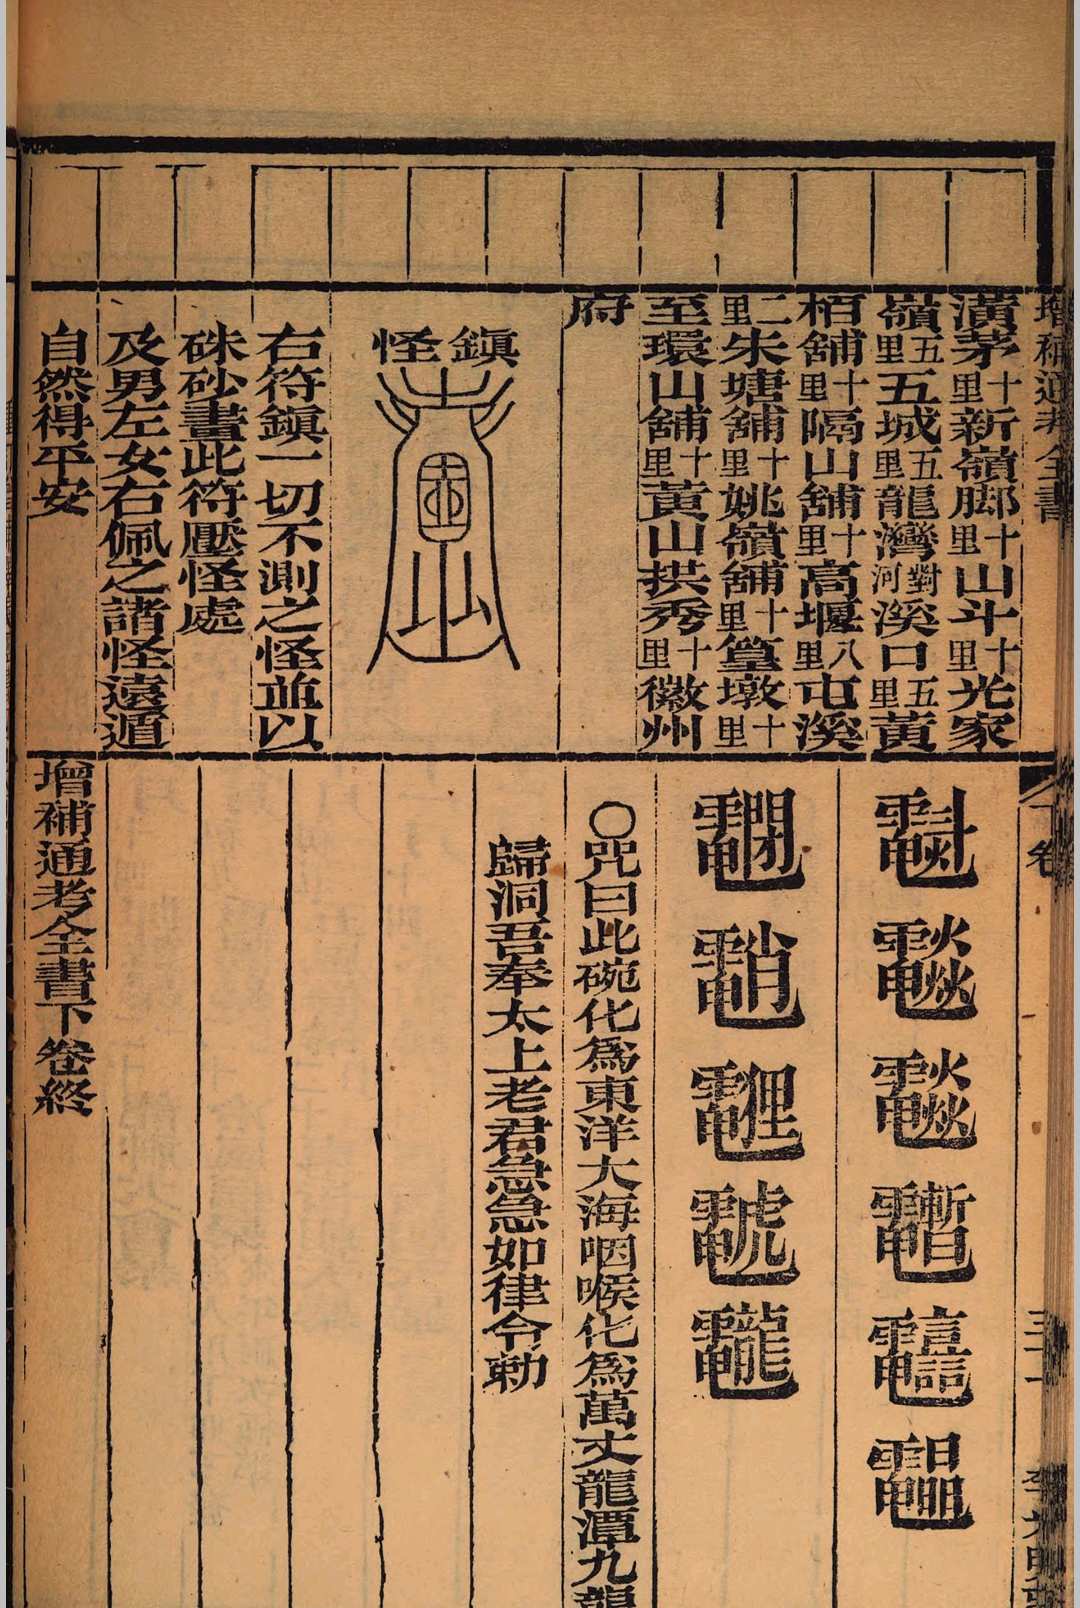 潢茅十里新嶺脚十里山斗十里光家
嶺五里五城五里龍灣對河溪口五里黃
栢舖十里隔山舖十里高堰八里屯溪
二里朱塘舖十里姚嶺舖十里篁墩十里
至環山舖十里黃山拱秀十里徽州
府
鎮怪
右符鎮一切不測之怪並以
硃砂畫此符壓怪處
及男左女右佩之諸怪遠遁
自然得平安
〇咒曰此碗化爲東洋大海咽喉化爲萬丈龍潭九龍
歸洞吾奉太上老君急急如律令勅
增補通考全書下卷終
增補通考全書
下卷
三十一